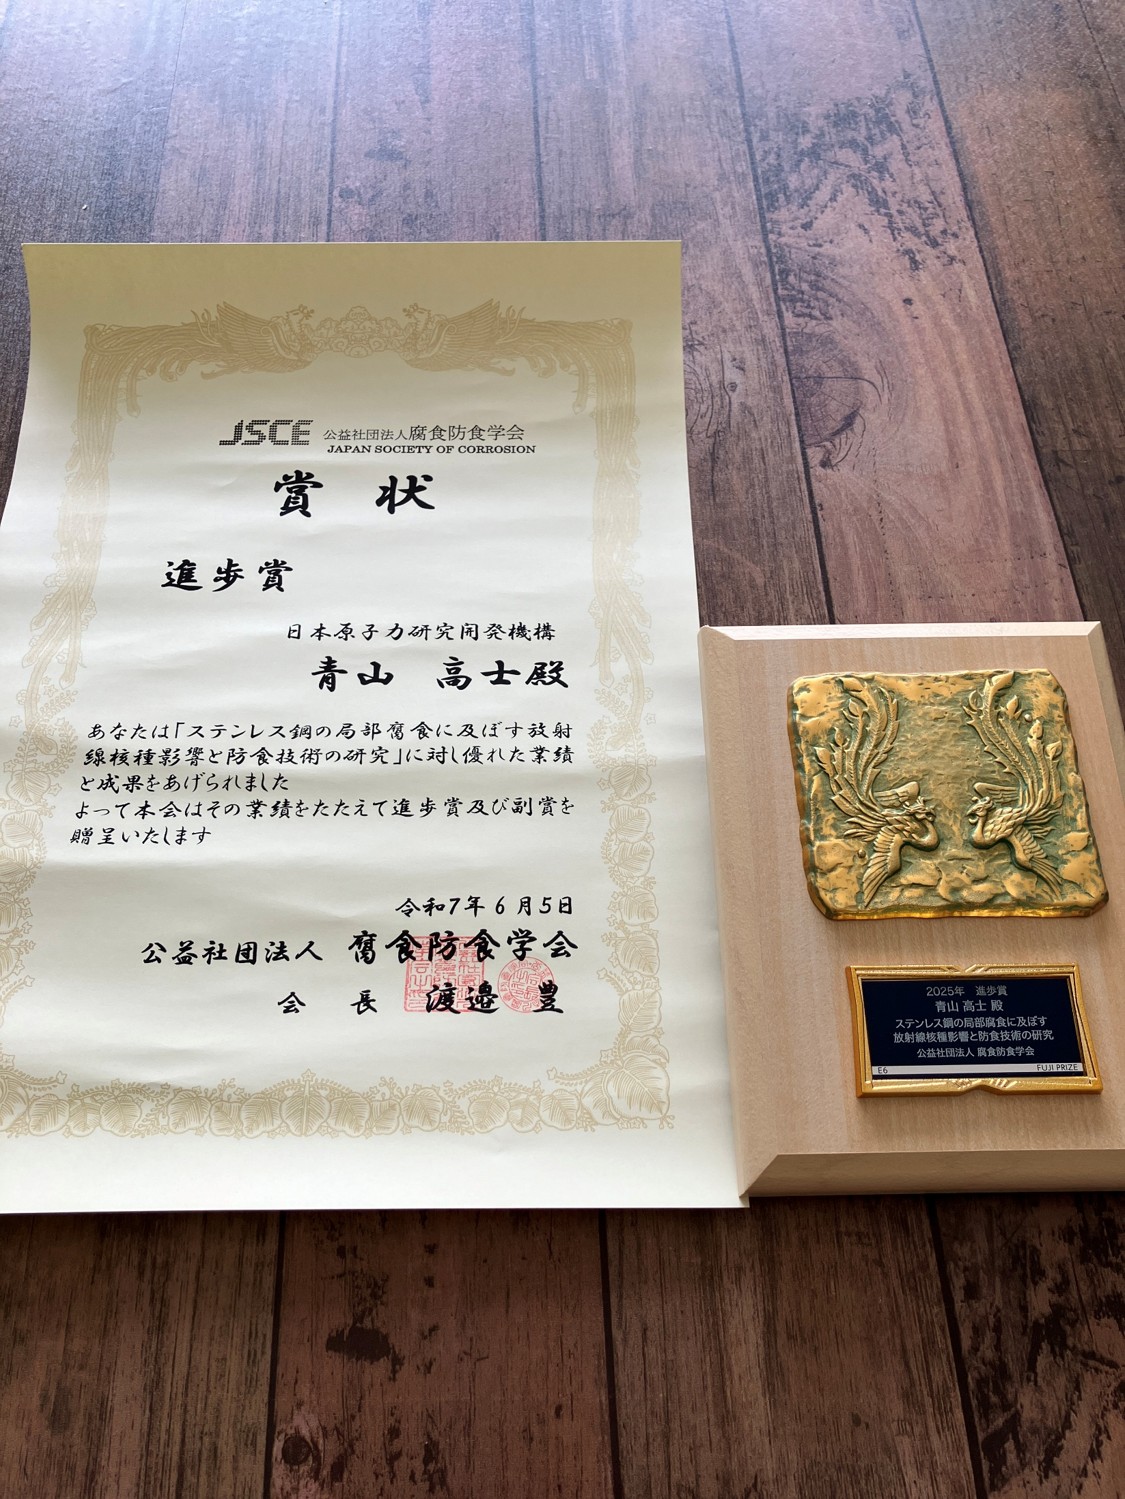 JSCE 公益社団法人腐食防食学会
JAPAN SOCIETY OF CORROSION
賞状
進歩賞
日本原子力研究開発機構
青山 高士殿
あなたは「ステンレス鋼の局部腐食に及ぼす放射
線核種影響と防食技術の研究」に対し優れた業績
と成果をあげられました
よって本会はその業績をたたえて進歩賞及び副賞を
贈呈いたします
令和7年6月5日
公益社団法人 腐食防食学会
会長 渡邉 豊
2025年 進歩賞
青山 高士 殿
ステンレス鋼の局部腐食に及ぼす
放射線核種影響と防食技術の研究
公益社団法人 腐食防食学会
E6 FUJI PRIZE